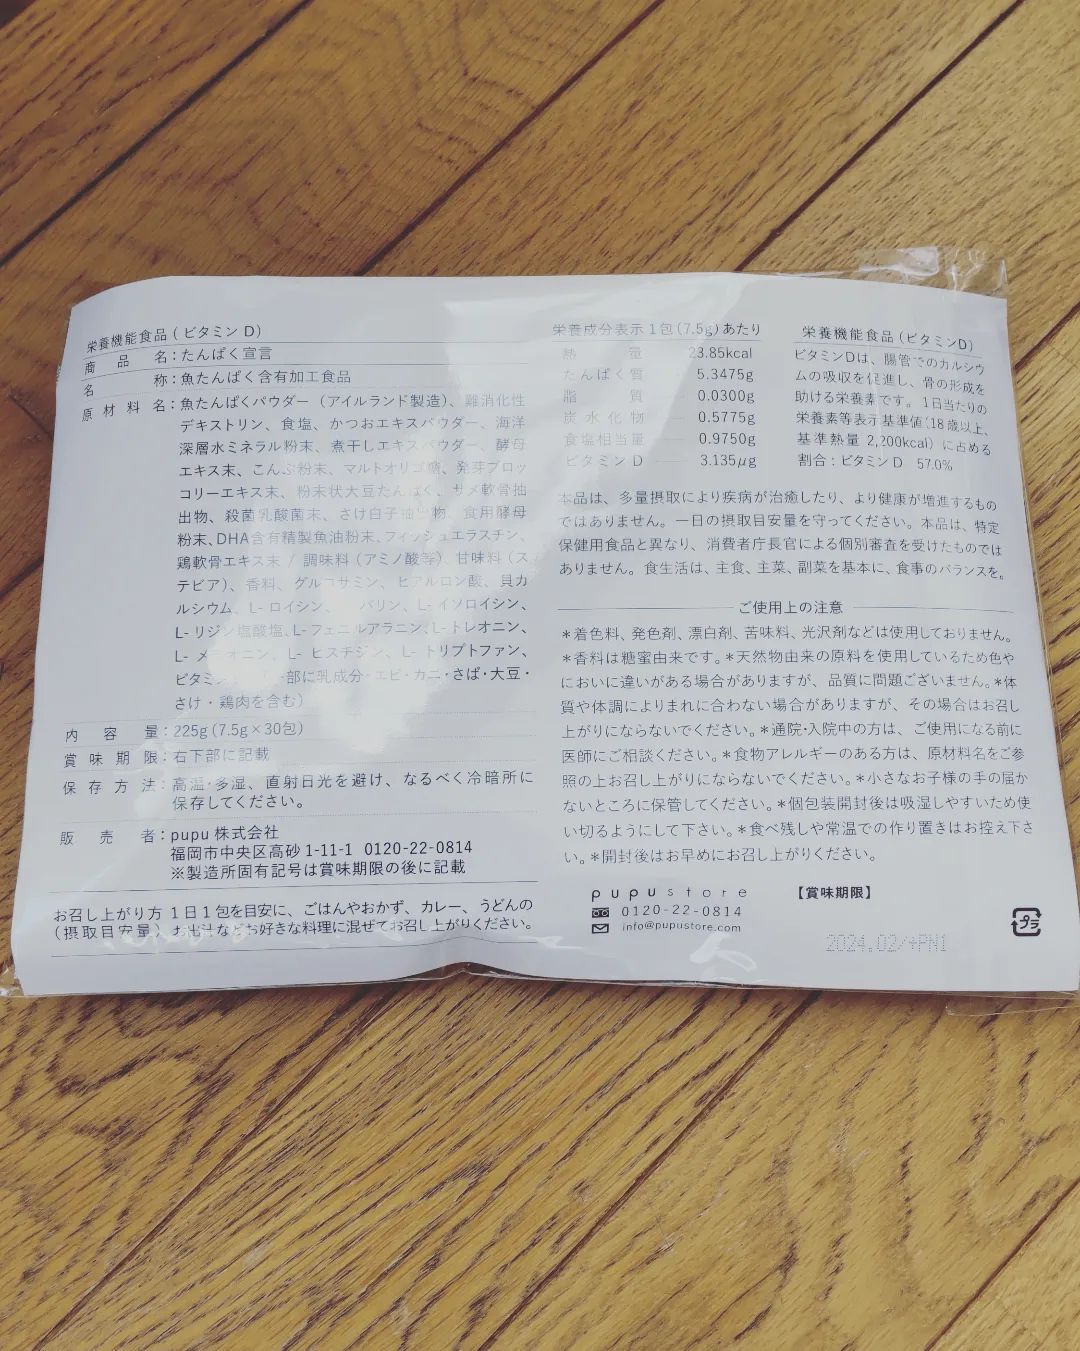 栄養機能食品(ビタミンD)
商品名:たんぱく宣言
名称:魚たんぱく含有加工食品
原材料名:魚たんぱくパウダー(アイルランド製造)、難消化性
デキストリン、食塩、かつおエキスパウダー、海洋
深層水ミネラル粉末、煮干しエキスパウダー、酵母
エキス末、こんぶ粉末、マルトオリゴ糖、発芽ブロッ
コリーエキス末、粉末状大豆たんぱく、サメ軟骨抽
出物、殺菌乳酸菌末、さけ白子抽出物、食用酵母
粉末、DHA含有精製魚油粉末、フィッシュエラスチン、
鶏軟骨エキス末/調味料(アミノ酸等)、甘味料(ス
テビア)、香料、グルコサミン、ヒアルロン酸、貝カ
ルシウム、L-ロイシン、バリン、L-イソロイシン、
L-リジン塩酸塩、L-フェニルアラニン、L-トレオニン、
L-メチオニン、L-ヒスチジン、L-トリプトファン、
ビタミン 部に乳成分・エビ・カニ・さば・大豆・
さけ・鶏肉を含む)
内容量:225g(7.5g×30包)
賞味期限:右下部に記載
保存方法:高温・多湿、直射日光を避け、なるべく冷暗所に
保存してください。
販売者:pupu株式会社
福岡市中央区高砂1-11-1 0120-22-0814
※製造所固有記号は賞味期限の後に記載
お召し上がり方 1日1包を目安に、ごはんやおかず、カレー、うどんの
(摂取目安量) お出汁などお好きな料理に混ぜてお召し上がりください。
栄養成分表示1包(7.5g)あたり
熱量 23.85kcal
たんぱく質 5.3475g
脂質 0.0300g
炭水化物 0.5775g
食塩相当量 0.9750g
ビタミンD 3.135μg
栄養機能食品(ビタミンD)
ビタミンDは、腸管でのカルシウ
ムの吸収を促進し、骨の形成を
助ける栄養素です。1日当たりの
栄養素等表示基準値(18歳以上、
基準熱量2,200kcal)に占める
割合:ビタミンD 57.0%
本品は、多量摂取により疾病が治癒したり、より健康が増進するもの
ではありません。一日の摂取目安量を守ってください。本品は、特定
保健用食品と異なり、消費者庁長官による個別審査を受けたものでは
ありません。食生活は、主食、主菜、副菜を基本に、食事のバランスを。
ご使用上の注意
*着色料、発色剤、漂白剤、苦味料、光沢剤などは使用しておりません。
*香料は糖蜜由来です。*天然物由来の原料を使用しているため色や
においに違いがある場合がありますが、品質に問題ございません。*体
質や体調によりまれに合わない場合がありますが、その場合はお召し
上がりにならないでください。*通院・入院中の方は、ご使用になる前に
医師にご相談ください。*食物アレルギーのある方は、原材料名をご参
照の上お召し上がりにならないでください。*小さなお子様の手の届か
ないところに保管してください。*個包装開封後は吸湿しやすいため使
い切るようにして下さい。*食べ残しや常温での作り置きはお控え下さ
い。*開封後はお早めにお召し上がりください。
pupu store
0120-22-0814
info@pupustore.com
【賞味期限】
2024.02/+PN1
プラ